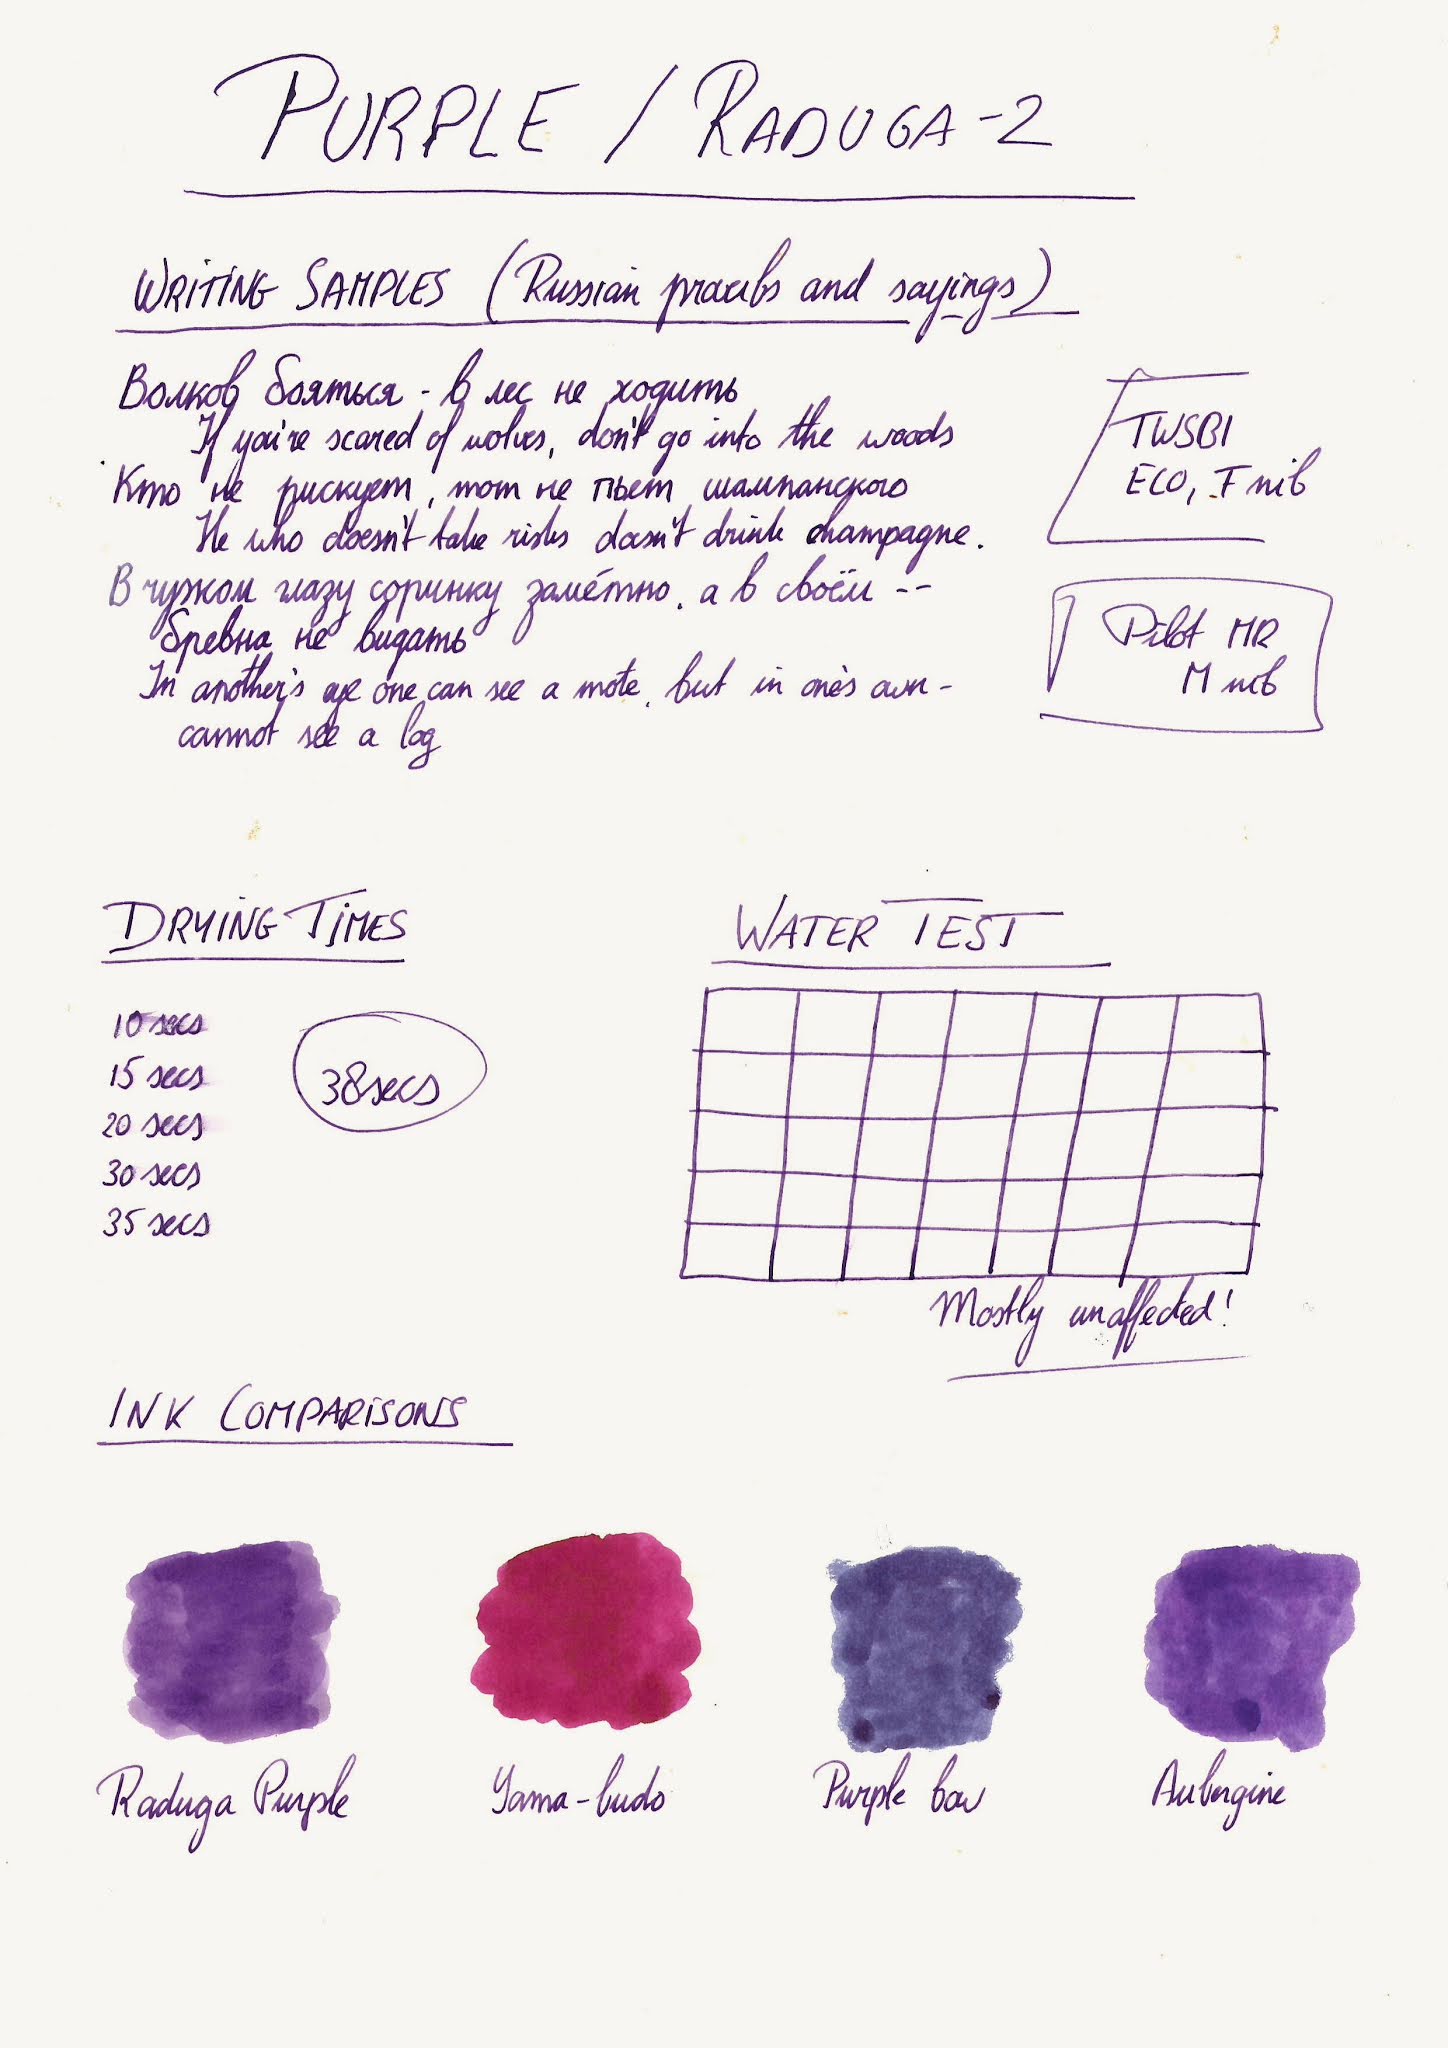 PURPLE / RADUGA-2
WRITING SAMPLES (Russian proverbs and sayings)
Волков бояться - в лес не ходить
If you're scared of wolves, don't go into the woods
Кто не рискует, тот не пьет шампанского
He who doesn't take risks doesn't drink champagne.
В чужом глазу соринку заметно, а в своём --
бревна не видать
In another's eye one can see a mote, but in one's own -
cannot see a log
TWSBI
ECO, F nib
Pilot MR
M nib
DRYING TIMES
10 secs
15 secs
20 secs
30 secs
35 secs
38 secs
WATER TEST
Mostly unaffected!
INK COMPARISONS
Raduga Purple
Yama-budo
Purple bow
Aubergine